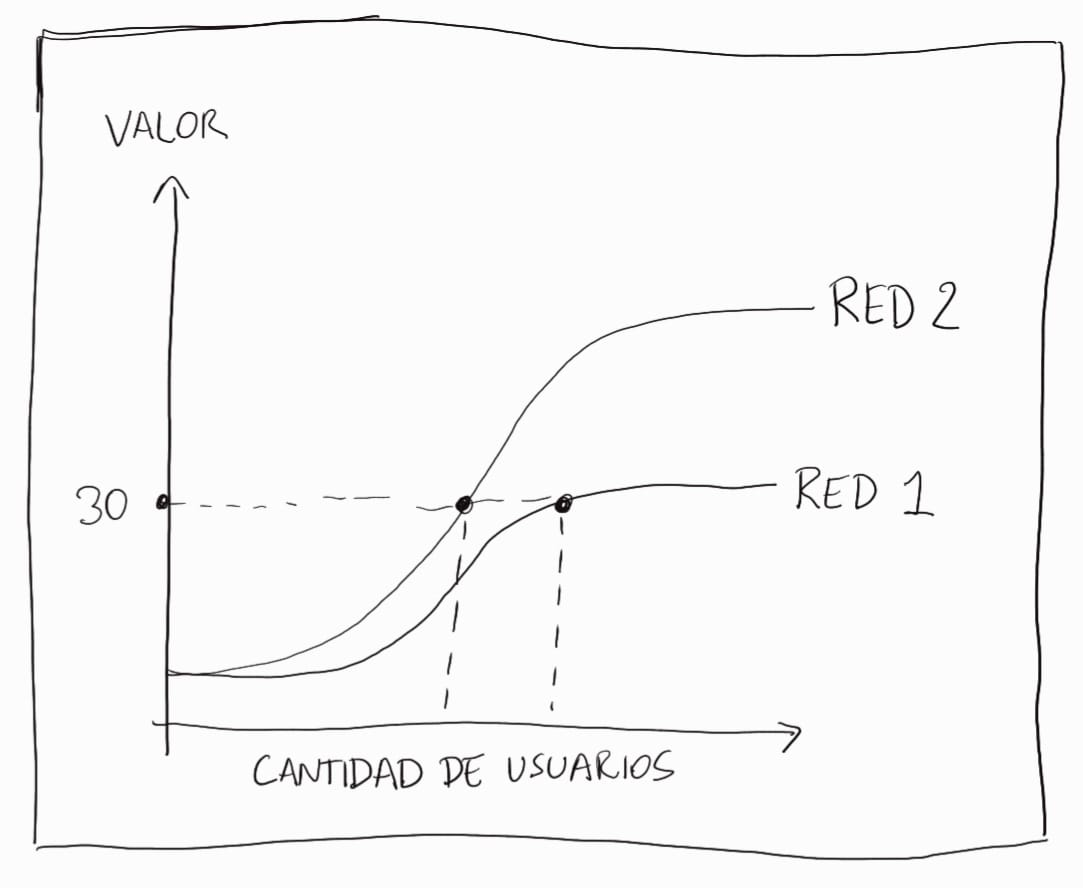 VALOR
RED 2
30
RED 1
CANTIDAD DE USUARIOS